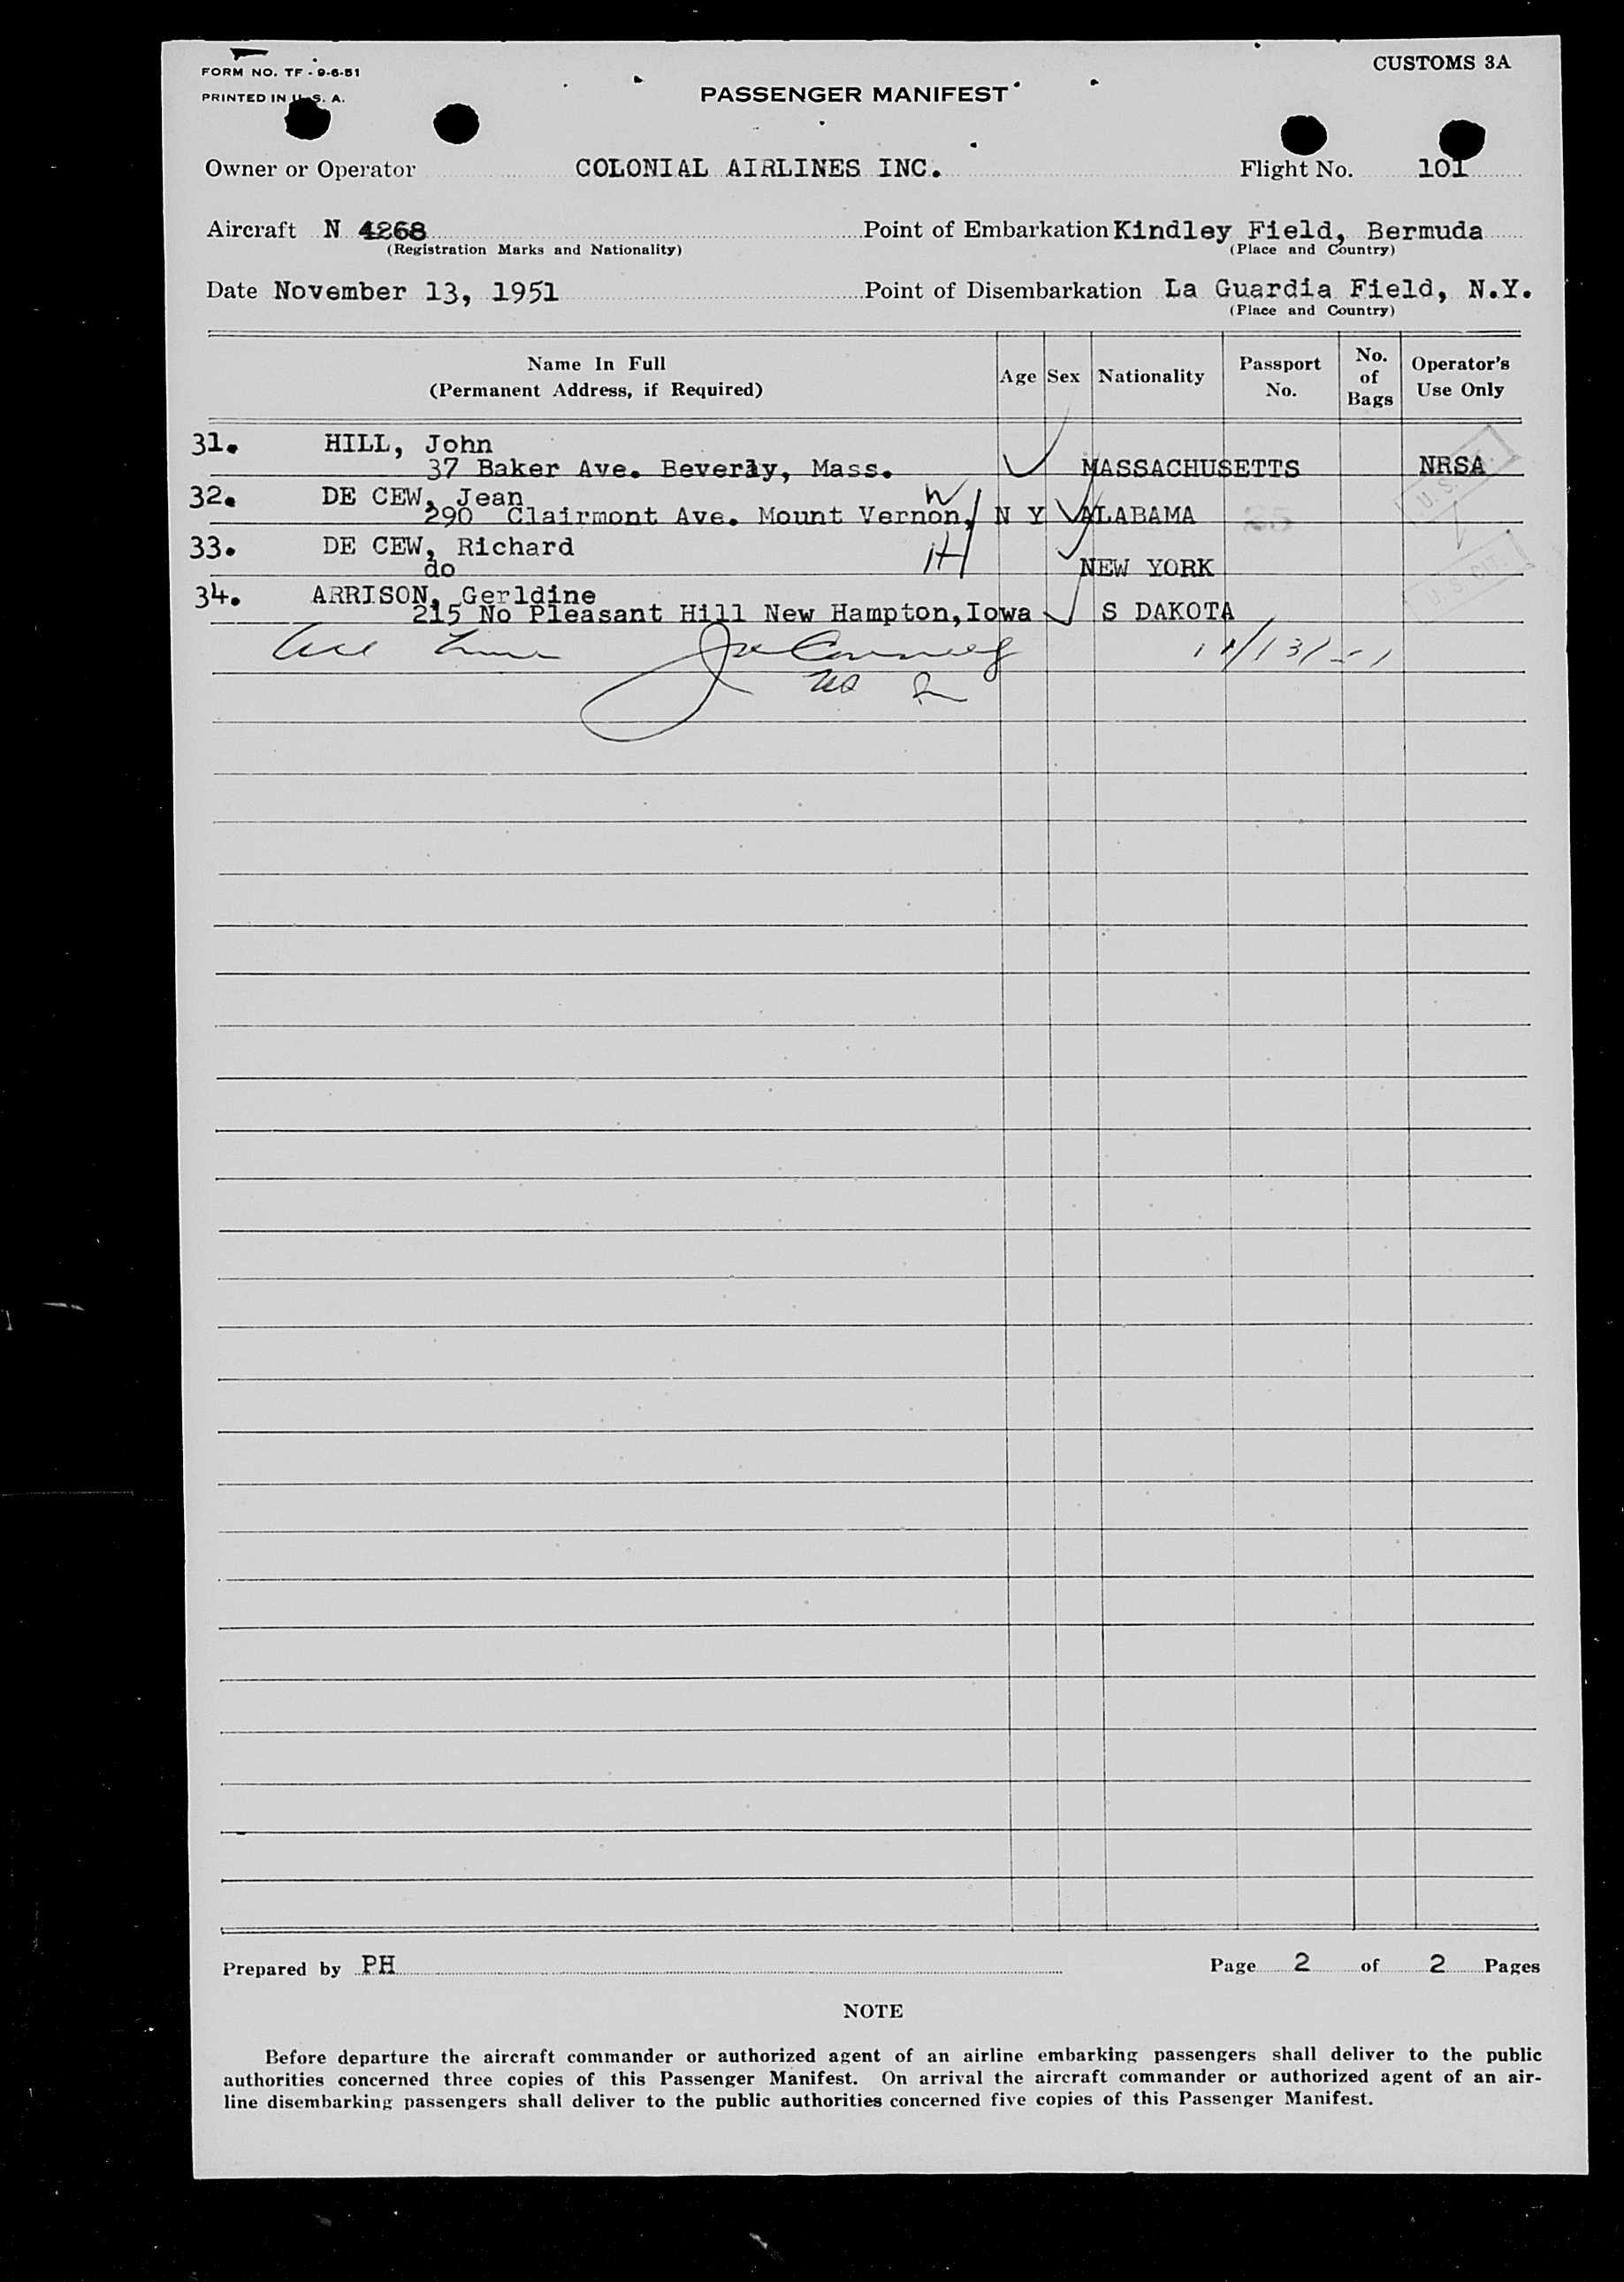 FORM NO. TF - 9-6-51
PRINTED IN U. S. A.
CUSTOMS 3A
PASSENGER MANIFEST
Owner or Operator COLONIAL AIRLINES INC. Flight No. 101
Aircraft N 4268 Point of Embarkation Kindley Field, Bermuda
(Registration Marks and Nationality) (Place and Country)
Date November 13, 1951 Point of Disembarkation La Guardia Field, N.Y.
(Place and Country)
Name In Full (Permanent Address, if Required) Age Sex Nationality Passport No. No. of Bags Operator's Use Only
31. HILL, John
37 Baker Ave. Beverly, Mass. MASSACHUSETTS NRSA
32. DE CEW, Jean W
290 Clairmont Ave. Mount Vernon, N Y ALABAMA
33. DE CEW, Richard H
do NEW YORK
U. S. CIT.
34. ARRISON, Gerldine
215 No Pleasant Hill New Hampton, Iowa S DAKOTA
11/13/51
Prepared by PH Page 2 of 2 Pages
NOTE
Before departure the aircraft commander or authorized agent of an airline embarking passengers shall deliver to the public
authorities concerned three copies of this Passenger Manifest. On arrival the aircraft commander or authorized agent of an air-
line disembarking passengers shall deliver to the public authorities concerned five copies of this Passenger Manifest.